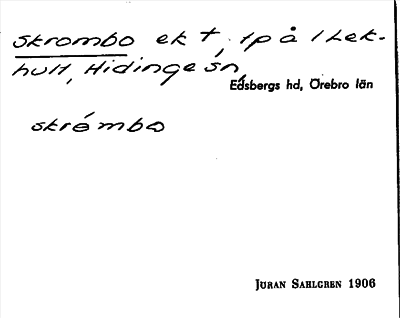 skrombo ek †, tp å 1 Lek-
hult, Hidinge sn,
Edsbergs hd, Örebro län
skrómbω
JÖRAN SAHLGREN 1906